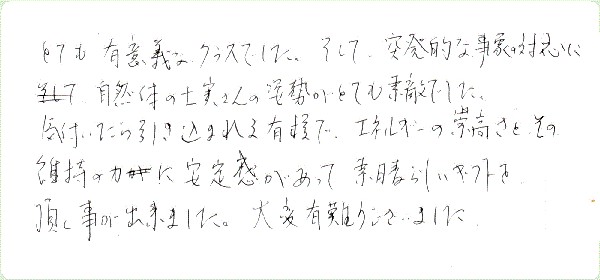 とても有意義なクラスでした。そして、突発的な事象の対応に
自然体の土実さんの姿勢がとても素敵でした。
気付いたら引き込まれる有様で、エネルギーの崇高さとその
維持の力に安定感があって素晴らしいギフトを
頂く事が出来ました。大変有難うございました